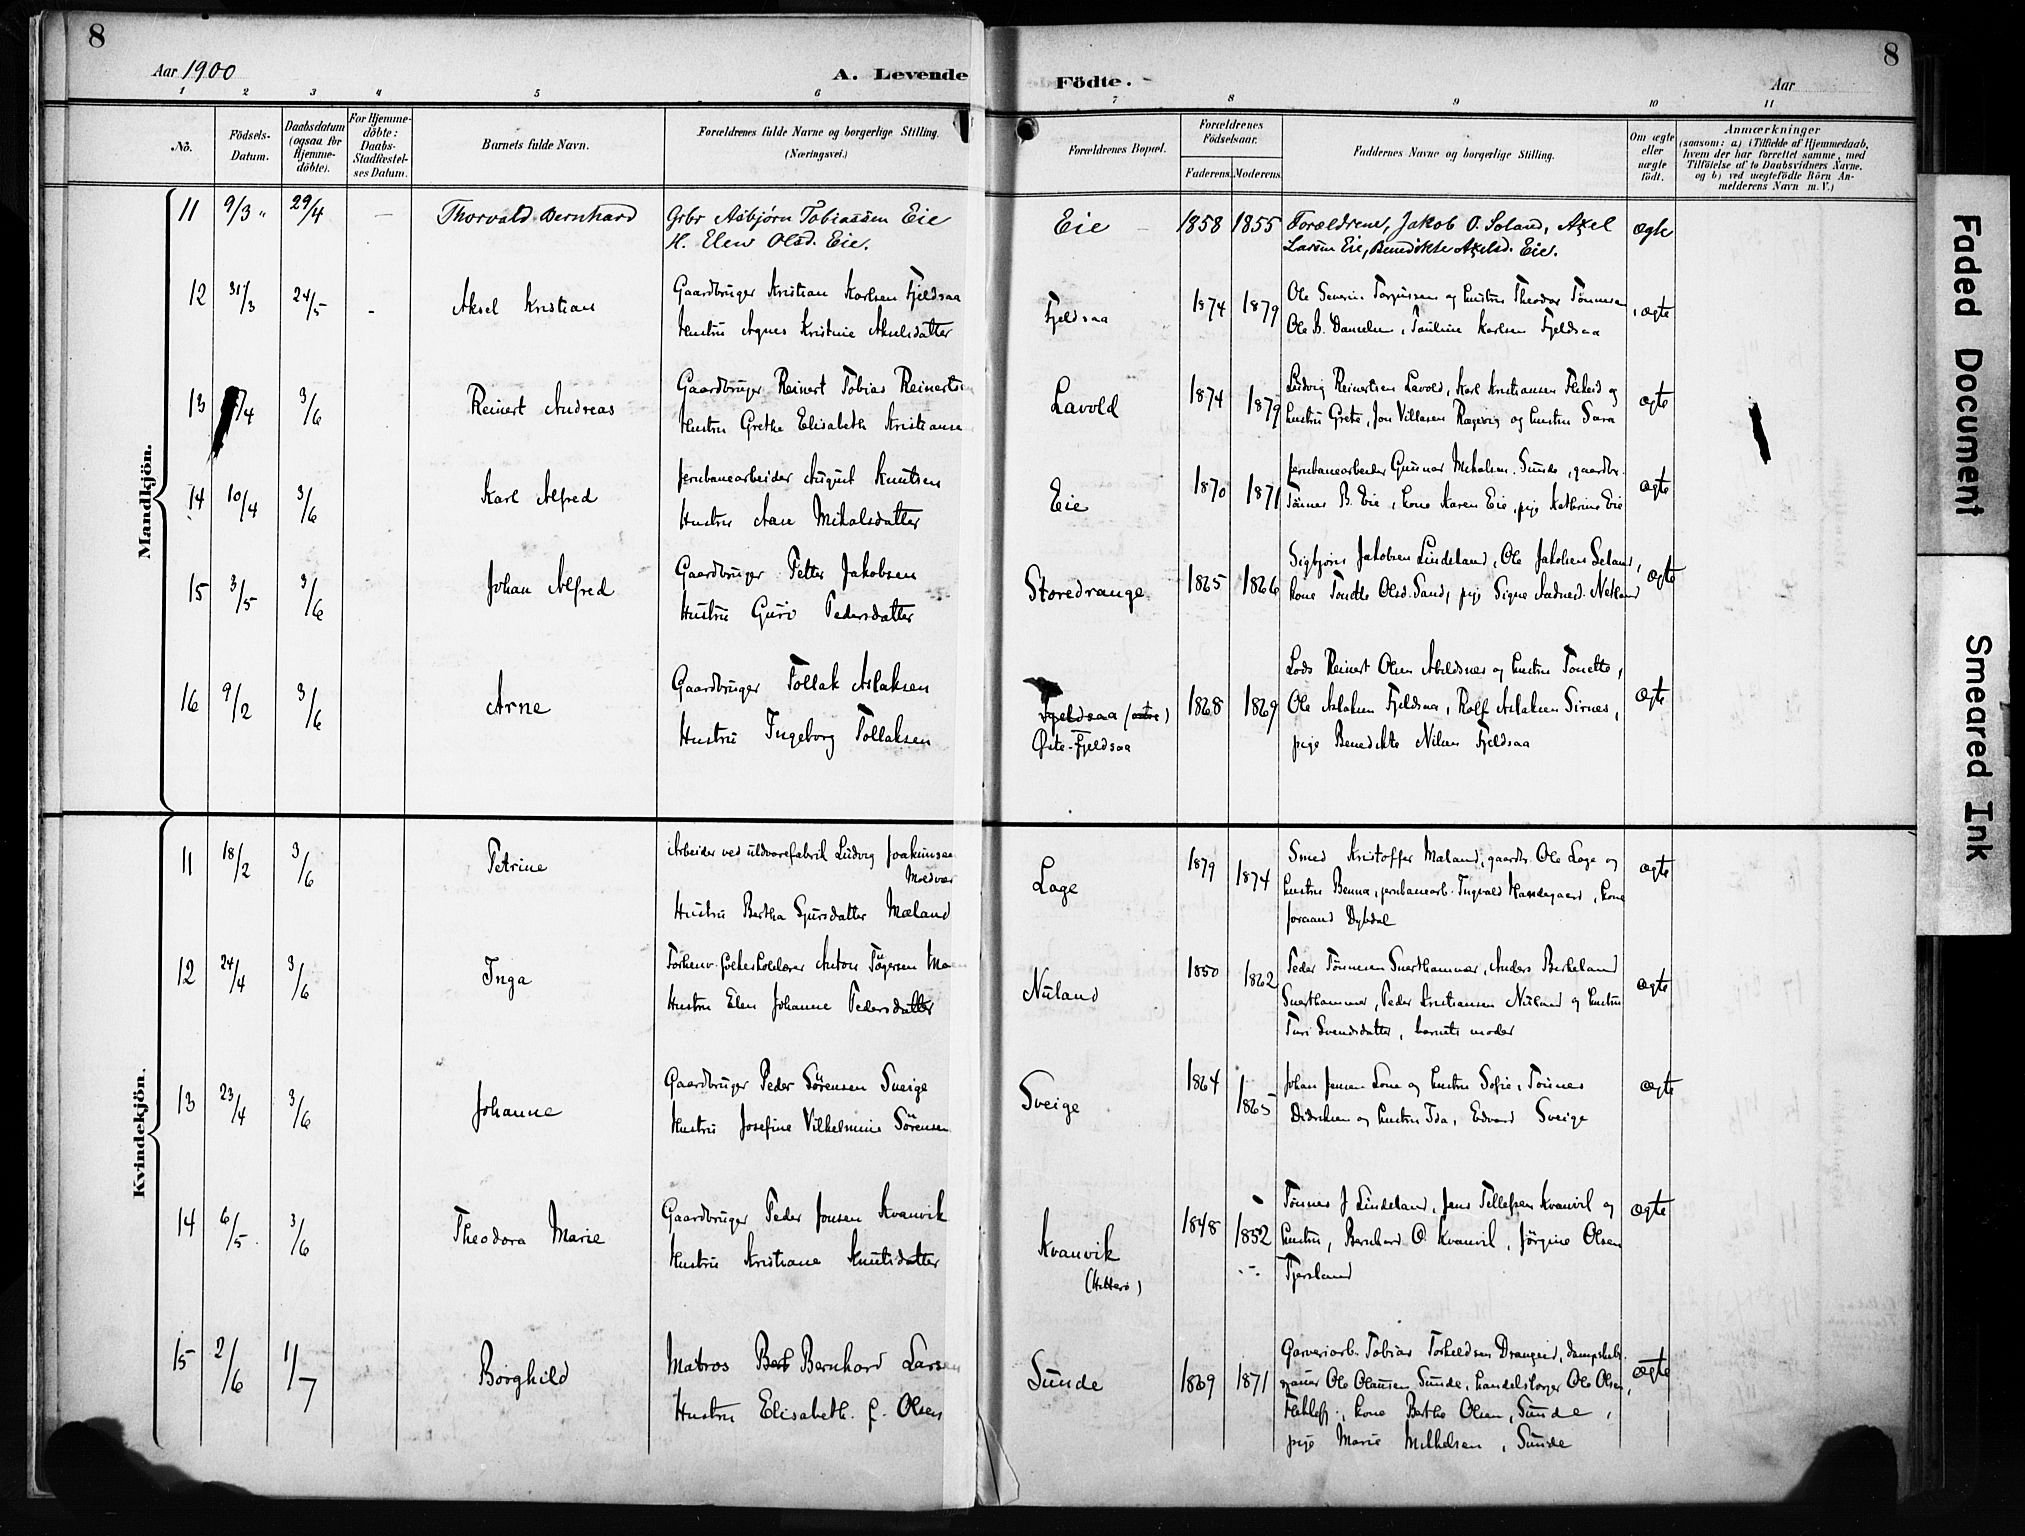 8
8
Aar 1900
A. Levende
Födte.
Aar
1 2 3 4 5 6
7 8 9 10 11
No.
Födsels-
Datum.
Daabsdatum
(ogsaa for
Hjemme-
döbte).
For Hjemme-
döbte:
Daabs-
Stadfæstel-
ses Datum.
Barnets fulde Navn.
Forældrenes fulde Navne og borgerlige Stilling.
(Næringsvei.)
Forældrenes Bopæl.
Forældrenes
Födselsaar.
Faderens. Moderens.
Faddernes Navne og borgerlige Stilling.
Om ægte
eller
uægte
födt.
Anmærkninger
(saasom: a) i Tilfælde af Hjemmedaab,
hvem der har forrettet samme, med
Tilföielse af to Daabsvidners Navne,
og b) ved uægtefödte Börn An-
melderens Navn m. V.)
Mandkjön.
11 9/3 " 29/4 — Thorvald Bernhard Grbr Asbjörn Tobiassen Eie Eie 1858 1855 Forældrene, Jakob O. Soland, Axel ægte
H. Elen Olsd. Eie. Larsen Eie, Benedikte Axelsd. Eie.
12 31/3 24/5 - Aksel Kristian Gaardbruger Kristian Karlsen Fjeldsaa Fjeldsaa 1874 1879 Ole Severin Torgussen og hustru Theodor Tönnesen ægte
Hustru Agnes Kristine Akselsdatter Ole B. Danielsen, Pauline Karlsen Fjeldsaa
13 /4 3/6 Reinert Andreas Gaardbruger Reinert Tobias Reinertsen Lavold 1874 1879 Ludvig Reinertsen Lavold, Karl Kristiansen Flikeid og ægte
Hustru Grethe Elisabeth Kristianse hustru Grete, Jon Villasen Rægevig og hustru Sara
14 10/4 3/6 Karl Alfred Jernbanearbeider August Knutsen Eie 1870 1871 Jernbanearbeider Gunnar Mikalsen Sunde, gaardbr. ægte
Hustru Ane Mikalsdatter Tönnes B. Eie, kone Karen Eie, pige Kathrine Eie
15 3/5 3/6 Johan Alfred Gaardbruger Petter Jakobsen Storedrange 1865 1866 Sigbjörn Jakobsen Lindeland, Ole Jakobsen Seland, ægte
Hustru Guro Pedersdatter kone Tonette Olsd. Sand, pige Signe Aadnesd. Netland
16 9/2 3/6 Arne Gaardbruger Tollak Aslaksen Fjeldsaa (östre) 1868 1869 Lods Reinert Olsen Abelsnes og hustru Tonette, ægte
Hustru Ingeborg Tollaksen Öste-Fjeldsaa Ole Aslaksen Fjeldsaa, Rolf Aslaksen Sirnes,
pige Benedikte Nilsen Fjeldsaa
Kvindekjön.
11 18/2 3/6 Petrine Arbeider ved uldvarefabrik Ludvig Joakimsen Lage 1879 1874 Smed Kristoffer Mæland, gaardbr. Ole Lage og ægte
Moedvær hustru Benna, jernbanearb. Ingvald Handegaard, kone
Hustru Bertha Sjursdatter Mæland Joraand Dybdal
12 24/4 3/6 Inga Forhenv. folkeskolelærer Anton Tögersen Mo Nuland 1850 1862 Peder Tönnesen Svarthammer, Anders Birkeland ægte
Hustru Elen Johanne Pedersdatter Svarthammer, Peder Kristiansen Nuland og hustru
Turi Svendsdatter, barnets moder
13 23/4 3/6 Johanne Gaardbruger Peder Sörensen Sveige Sveige 1864 1865 Johan Jensen Lone og hustru Sofie, Tönnes ægte
Hustru Josefine Vilhelmine Sörensen Didriksen og hustru Ida, Edvard Sveige
14 6/5 3/6 Theodora Marie Gaardbruger Peder Jonsen Kvanvik Kvanvik 1848 1852 Tönnes J Lindeland, Jens Tellefsen Kvanvik og ægte
Hustru Kristiane Knutsdatter (Hitterö) hustru, Bernhard O. Kvanvik, Jörgine Olsen
Tjersland
15 2/6 1/7 Borghild Matros Bernhard Larsen Sunde 1869 1871 Garveriarb. Tobias Torkeldsen Drangeid, dampskibs- ægte
Hustru Elisabeth f. Olsen Ole Olausen Sunde, handelsborger Ole Olsen,
Flekkefj., kone Berthe Olsen, Sunde,
pige Marie Mikkelsen, Sunde
Faded Document
Smeared Ink